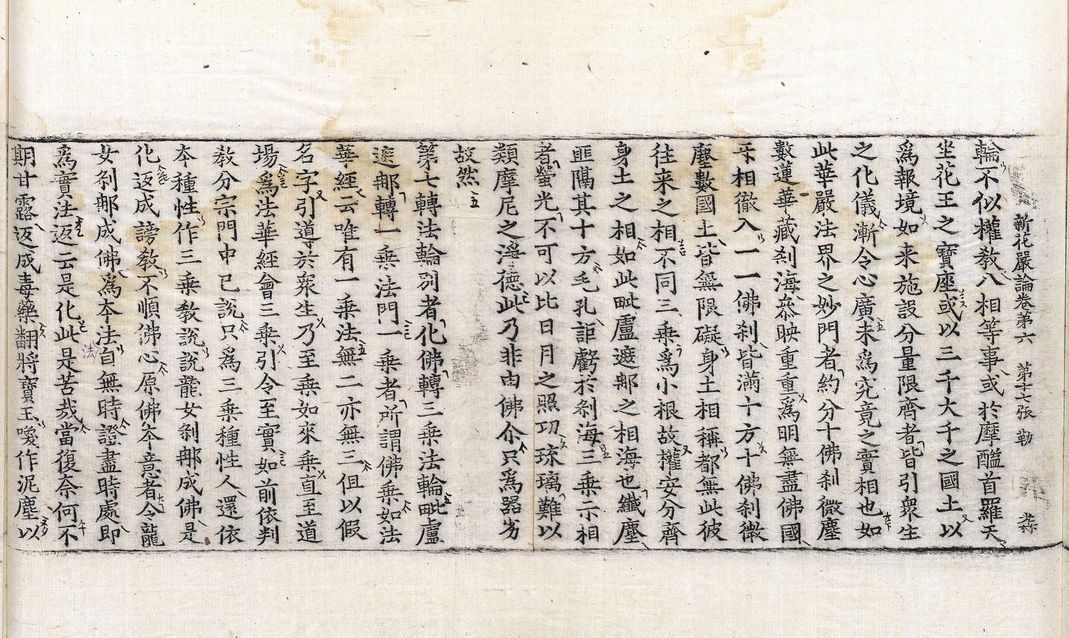 新花嚴論卷第六　第十七張　勒
輪不似權教八相等事或於摩醯首羅天
坐花王之寶座或以三千大千之國土以
爲報境如来施設分量限齊者皆引衆生
之化儀漸令心廣未爲究竟之實相也如
此華嚴法界之妙門者約分十佛刹微塵
數蓮華藏刹海叅映重重爲明無盡佛國
互相徹入一一佛刹皆滿十方十佛刹微
塵數國土皆無限礙身土相稱都無此彼
往来之相不同三乘爲小根故權安分齊
身土之相如此毗盧遮那之相海也纖塵
匪隔其十方毛孔詎虧於刹海三乘示相
者螢光不可以比日月之照功琭璃難以
類摩尼之滛德此乃非由佛尒只爲器劣
故然
第七轉法輪別者化佛轉三乘法輪毗盧
遮那轉一乘法門一乘者所謂佛乘如法
華經云唯有一乘法無二亦無三但以假
名字引導於衆生乃至乘如来乘直至道
場爲法華經會三乘引令至實如前依判
教分宗門中已說只爲三乘種性人還依
本種性作三乘教說說龍女刹那成佛是
化返成謗教不順佛心原佛本意者令龍
女刹那成佛爲本法自無時證盡時處即
爲實法返云是化此是苦哉當復奈何不
期甘露返成毒藥翻將寶玉喚作泥塵以